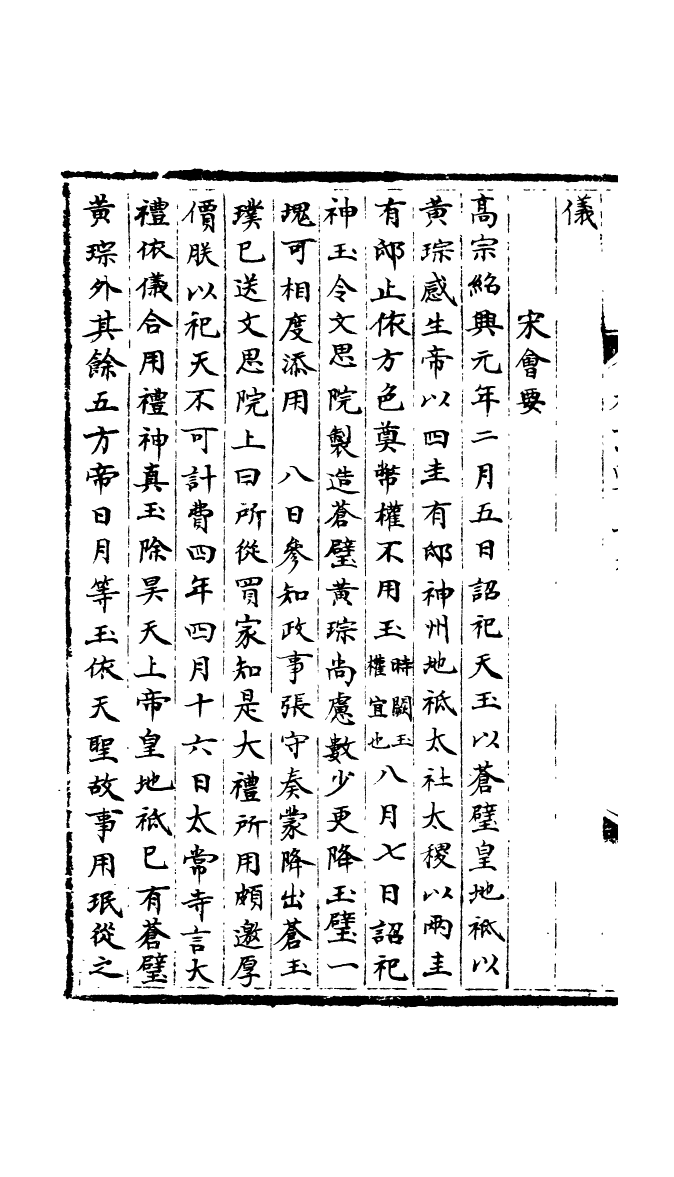 儀
宋會要
髙宗紹興元年二月五日詔祀天玉以蒼璧皇地祗以
黃琮感生帝以四圭有邸神州地祗太社太稷以兩圭
有邸止依方色奠幣權不用玉時闕玉權宜也八月七日詔祀
神玉令文思院製造蒼璧黃琮尚慮數少更降玉璧一
塊可相度添用　八日參知政事張守奏蒙降出蒼玉
璞已送文思院上曰所從買家知是大禮所用頗邀厚
價朕以祀天不可計費四年四月十六日太常寺言大
禮依儀合用禮神真玉除昊天上帝皇地祗巳有蒼璧
黃琮外其餘五方帝日月等玉依天聖故事用珉從之